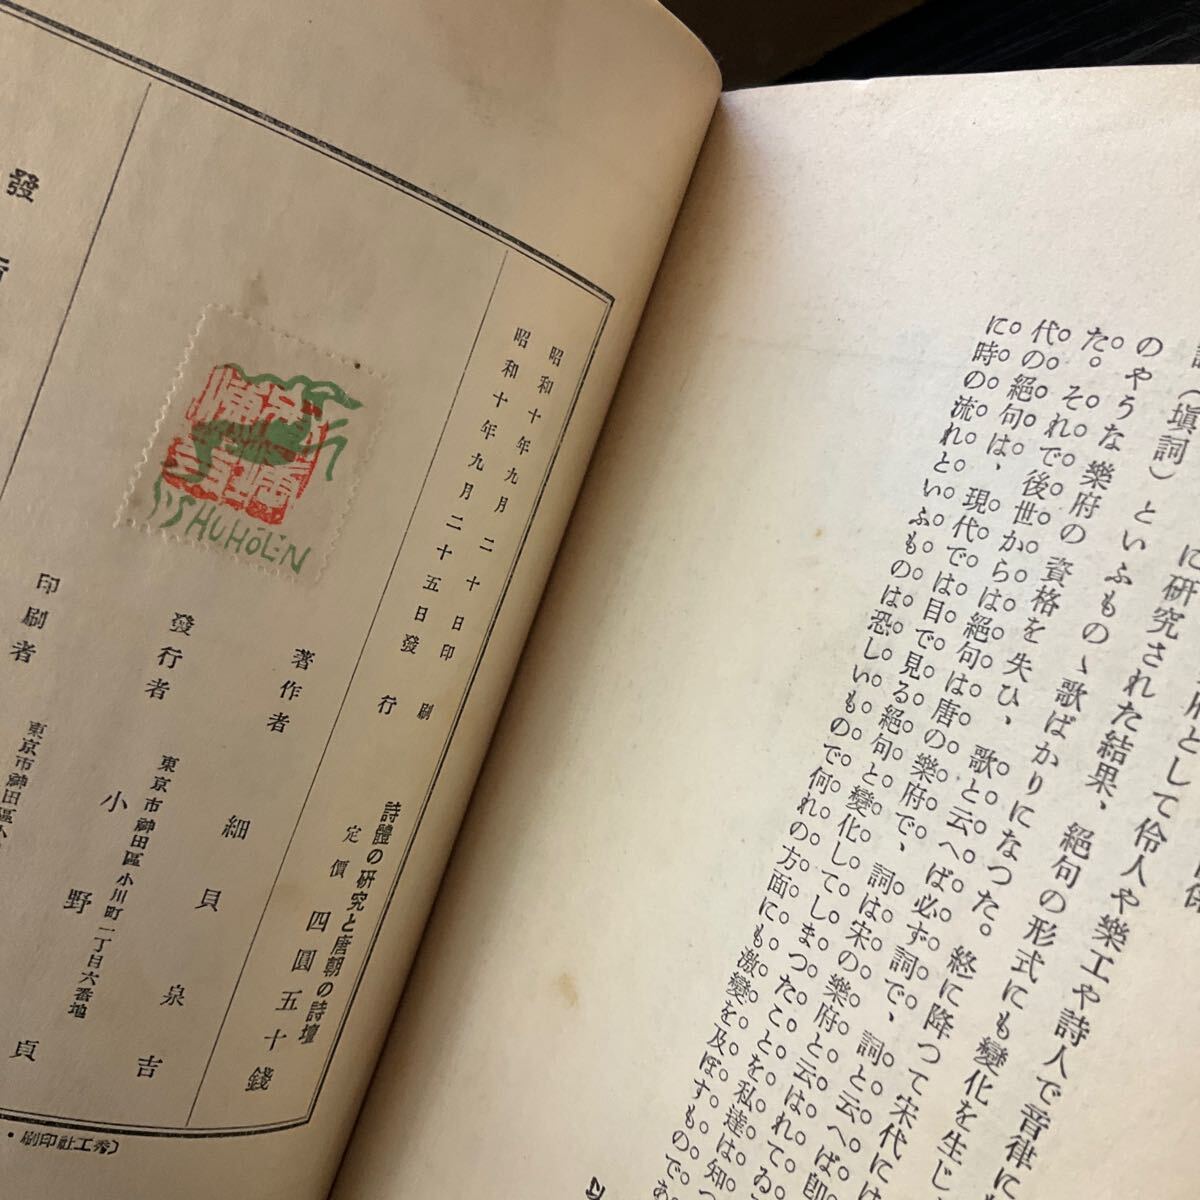 に研究された結果、絕句の形式にも變化を生じ、
のやうな樂府の資格を失ひ、歌と云へば必ず詞で、詞と云へば卽
(塡詞)といふもの、歌ばかりになつた。終に降つて宋代には
た。それで後世からは絕句は唐の樂府で、詞は宋の樂府と云はれてゐ
代の絕句は、現代では目で見る絕句と變化してしまつたことを私達は知つ
に時の流れといふものは恐しいもので何れの方面にも激變を及ぼすものであ
昭和十年九月二十日印刷
昭和十年九月二十五日發行
詩體の硏究と唐朝の詩壇
定價 四圓五十錢
著作者 細貝泉吉
發行者 東京市神田區小川町一丁目六番地
小野貞
印刷者 東京市神田區小
SHUHŌEN
發
秀工社印刷